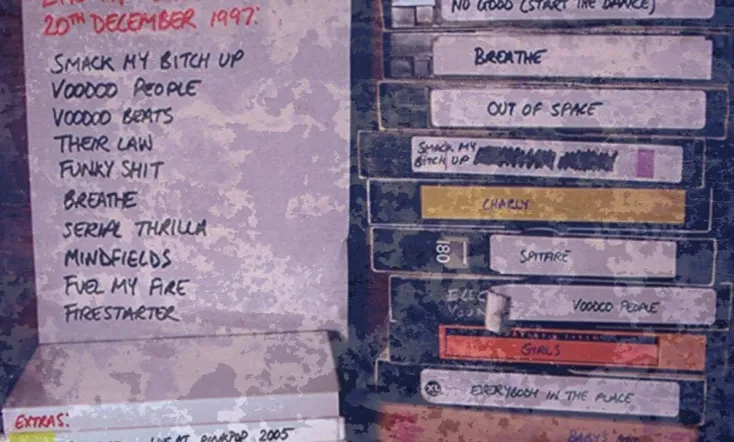 20TH DECEMBER 1997:
SMACK MY BITCH UP
VOODOO PEOPLE
VOODOO BEATS
THEIR LAW
FUNKY SHIT
BREATHE
SERIAL THRILLA
MINDFIELDS
FUEL MY FIRE
FIRESTARTER
EXTRAS:
PINKPOP 2005
NO GOOD (START THE DANCE)
BREATHE
OUT OF SPACE
SMACK MY
BITCH UP
CHARLY
180
SPITFIRE
VOODOO PEOPLE
GIRLS
XL EVERYBODY IN THE PLACE
BABY'S